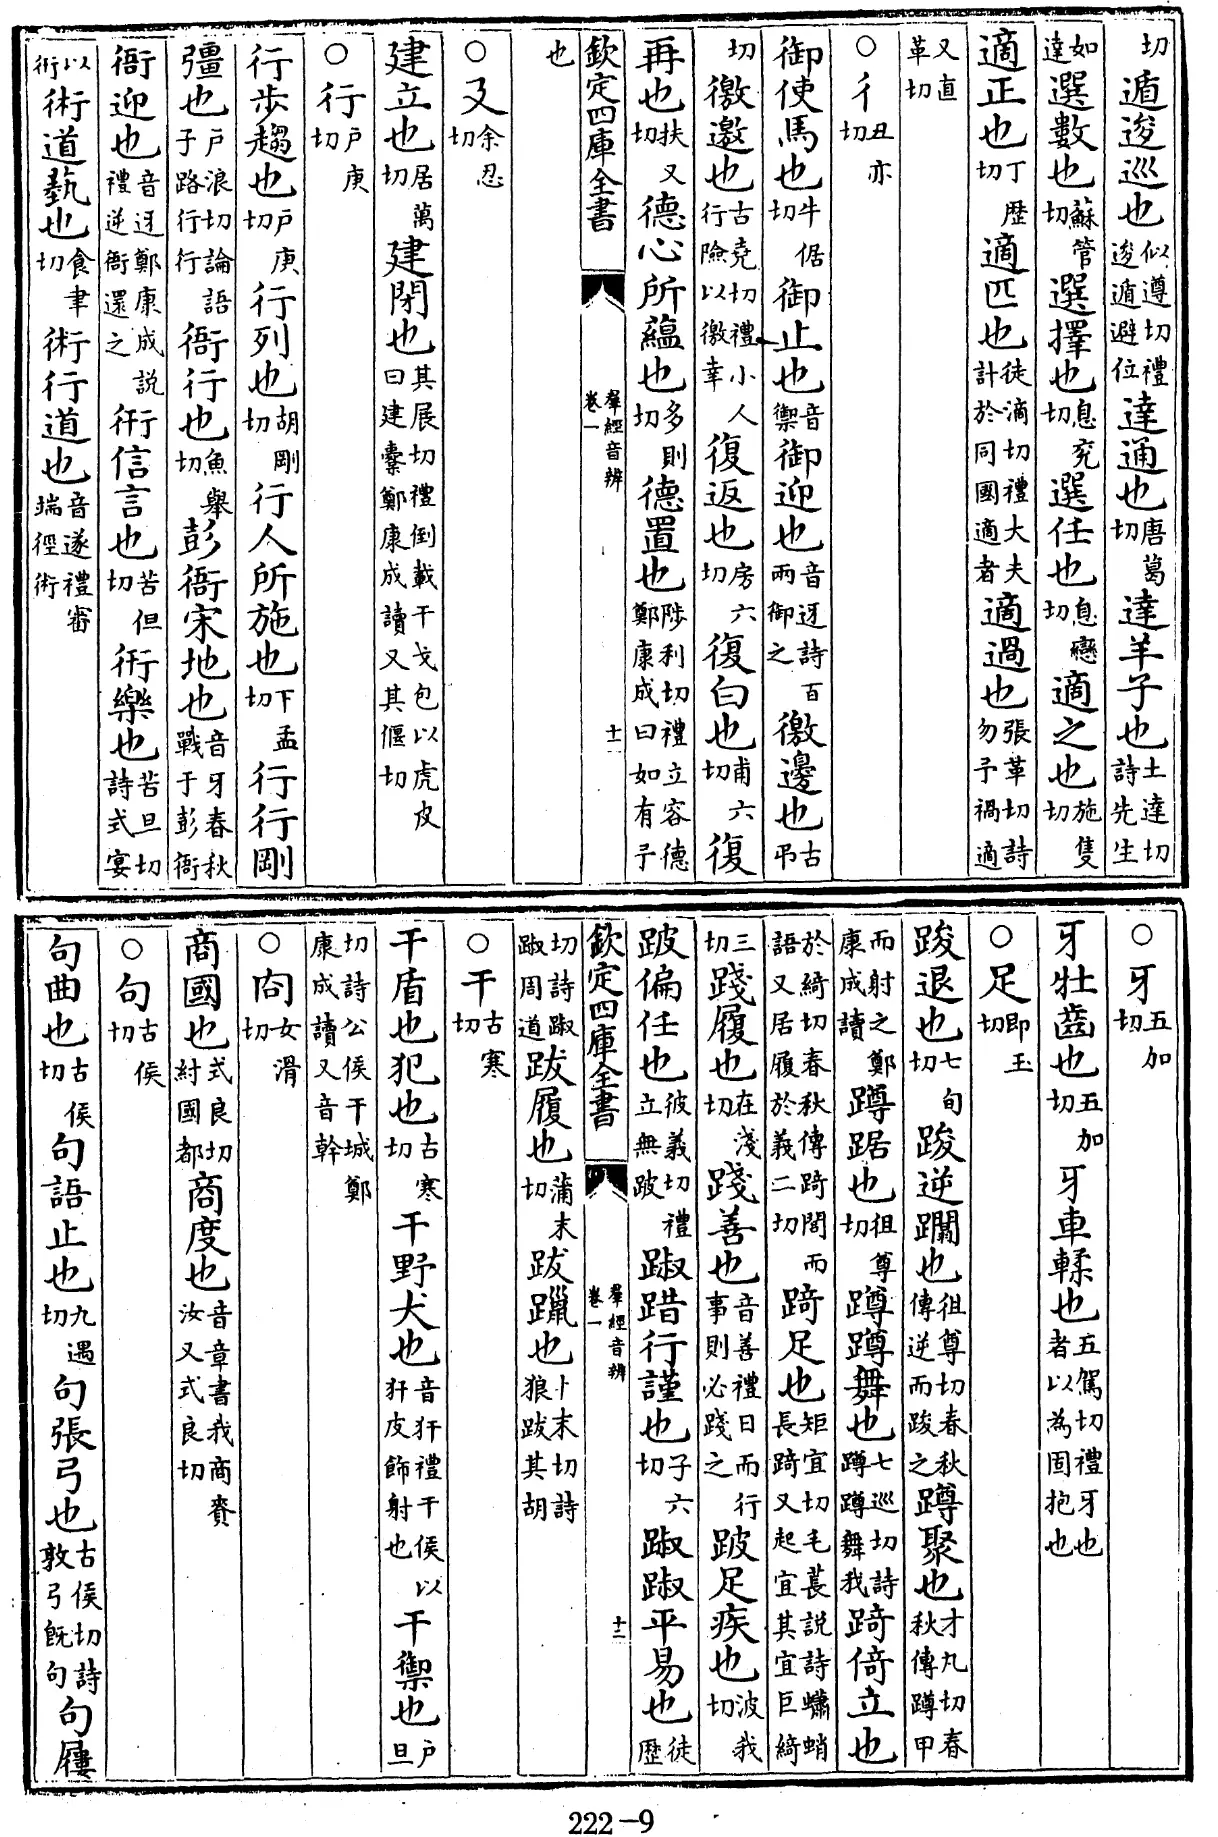 切遁逡巡也似遵切禮逡遁避位達通也唐葛切達羊子也土達切詩先生
如達選數也蘇管切選擇也息兖切選任也息戀切適之也施隻切
適正也丁歴切適匹也徒滴切禮大夫計於同國適者適過也張革切詩勿予禍適
又直革切
○彳丑亦切
御使馬也牛倨切御止也音禦御迎也音迓詩百兩御之徼邊也古弔
切徼邀也古堯切禮小人行險以徼幸復返也房六切復白也甫六切復
再也扶又切德心所蘊也多則切德置也陟利切禮立容德鄭康成曰如有予
欽定四庫全書 羣經音辨卷一 十一
也
○廴余忍切
建立也居萬切建閉也其展切禮倒載干戈包以虎皮曰建櫜鄭康成讀又其偃切
○行戶庚切
行步趨也戶庚切行列也胡剛切行人所施也下孟切行行剛
彊也戶浪切論語子路行行衙行也魚舉切彭衙宋地也音牙春秋戰于彭衙
衙迎也音迓鄭康成説禮逆衙還之衎信言也苦但切衎樂也苦旦切詩式宴
以衎術道蓺也食聿切術行道也音遂禮審端徑術
○牙五加切
牙牡齒也五加切牙車輮也五駕切禮牙也者以為固抱也
○足即玉切
踆退也七旬切踆逆躝也徂尊切春秋傳逆而踆之蹲聚也才丸切春秋傳蹲甲
而射之鄭康成讀蹲踞也徂尊切蹲蹲舞也七巡切詩蹲蹲舞我踦倚立也
於綺切春秋傳踦閭而語又居履於義二切踦足也矩宜切毛萇説詩蠨蛸長踦又起宜其宜巨綺
三切踐履也在淺切踐善也音善禮日而行事則必踐之跛足疾也波我切
跛偏任也彼義切禮立無跛踧踖行謹也子六切踧踧平易也徒歷
欽定四庫全書 羣經音辨卷一 十二
切詩踧踧周道跋履也蒲末切跋躐也卜末切詩狼跋其胡
○干古寒切
干盾也犯也古寒切干野犬也音犴禮干侯以犴皮飾射也干禦也戶旦
切詩公侯干城鄭康成讀又音幹
○㕯女滑切
商國也式良切紂國都商度也音章書我商賚汝又式良切
○句古侯切
句曲也古侯切句語止也九遇切句張弓也古侯切詩敦弓旣句句屨
222-9